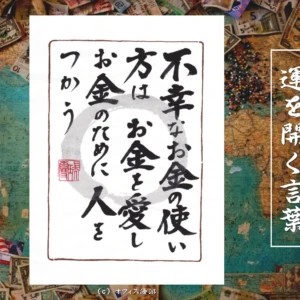 不幸なお金の使い
方は お金を愛し
お金のために 人を
つかう
運を開く言葉
(c) オフィス海猫